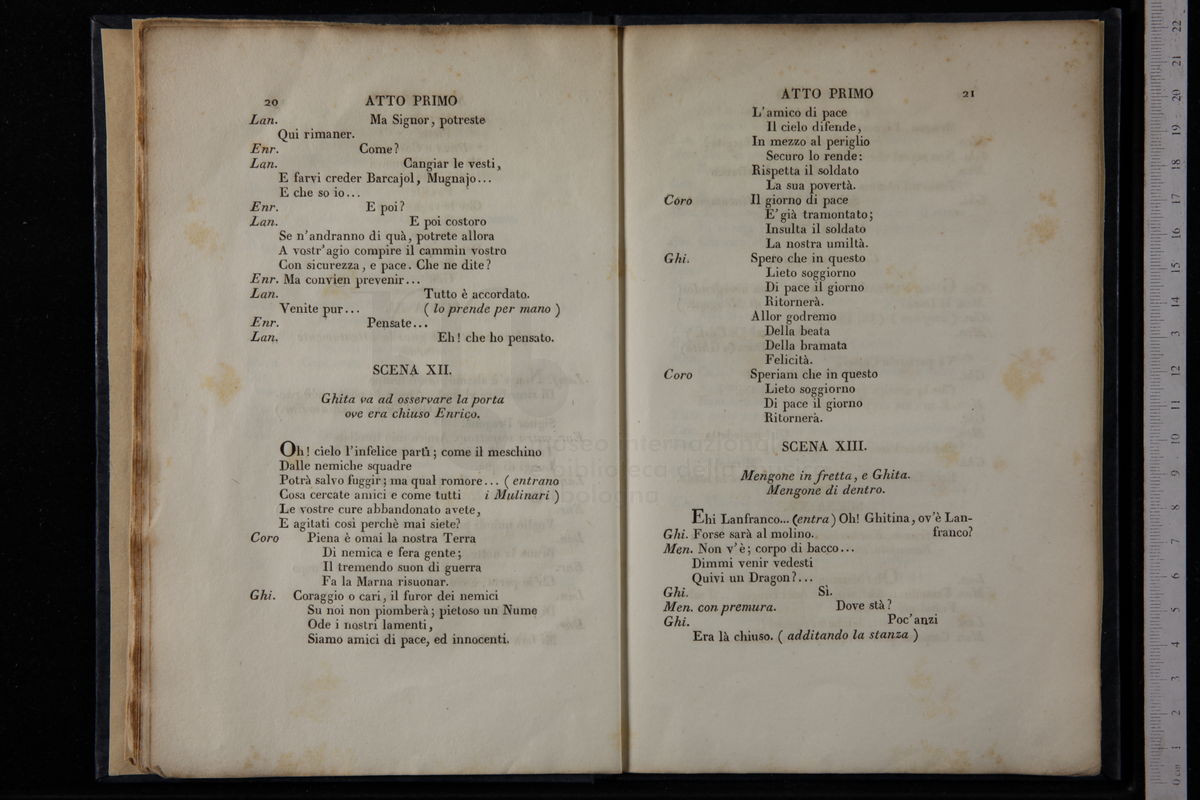 20 ATTO PRIMO
Lan. Ma Signor, potreste
Qui rimaner.
Enr. Come?
Lan. Cangiar le vesti,
E farvi creder Barcajol, Mugnajo...
E che so io...
Enr. E poi?
Lan. E poi costoro
Se n'andranno di quà, potrete allora
A vostr'agio compire il cammin vostro
Con sicurezza, e pace. Che ne dite?
Enr. Ma convien prevenir...
Lan. Tutto è accordato.
Venite pur... ( lo prende per mano )
Enr. Pensate...
Lan. Eh! che ho pensato.
SCENA XII.
Ghita va ad osservare la porta
ove era chiuso Enrico.
Oh! cielo l'infelice partì; come il meschino
Dalle nemiche squadre
Potrà salvo fuggir; ma qual romore... ( entrano
Cosa cercate amici e come tutti i Mulinari )
Le vostre cure abbandonato avete,
E agitati così perchè mai siete?
Coro Piena è omai la nostra Terra
Di nemica e fera gente;
Il tremendo suon di guerra
Fa la Marna risuonar.
Ghi. Coraggio o cari, il furor dei nemici
Su noi non piomberà; pietoso un Nume
Ode i nostri lamenti,
Siamo amici di pace, ed innocenti.
ATTO PRIMO 21
L'amico di pace
Il cielo difende,
In mezzo al periglio
Securo lo rende:
Rispetta il soldato
La sua povertà.
Coro Il giorno di pace
E' già tramontato;
Insulta il soldato
La nostra umiltà.
Ghi. Spero che in questo
Lieto soggiorno
Di pace il giorno
Ritornerà.
Allor godremo
Della beata
Della bramata
Felicità.
Coro Speriam che in questo
Lieto soggiorno
Di pace il giorno
Ritornerà.
SCENA XIII.
Mengone in fretta, e Ghita.
Mengone di dentro.
Ehi Lanfranco... (entra) Oh! Ghitina, ov'è Lan-
Ghi. Forse sarà al molino. franco?
Men. Non v'è; corpo di bacco...
Dimmi venir vedesti
Quivi un Dragon?...
Ghi. Sì.
Men. con premura. Dove stà?
Ghi. Poc'anzi
Era là chiuso. ( additando la stanza )
museo internazionale
e biblioteca della
bologna
0 cm 1 2 3 4 5 6 7 8 9 10 11 12 13 14 15 16 17 18 19 20 21 22